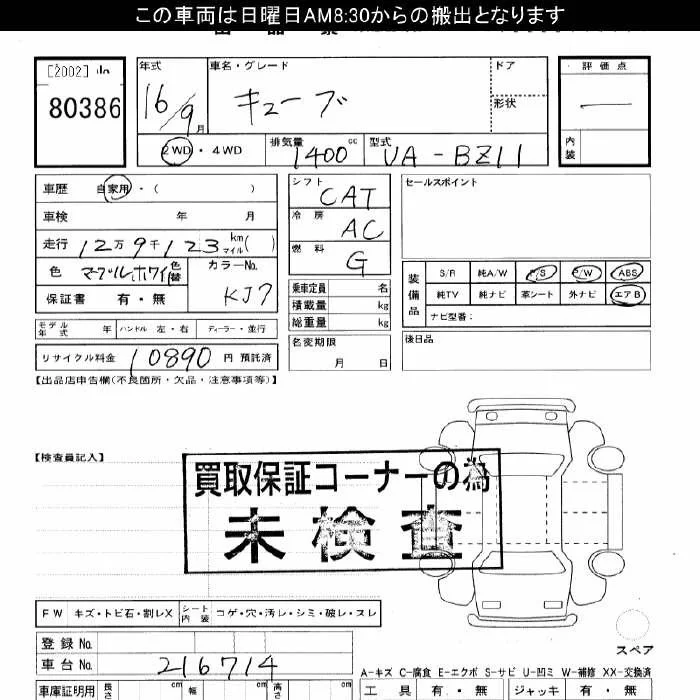 この車両は日曜日AM8:30からの搬出となります
[2002]
80386
年式 車名・グレード ドア 評価点
16/9月 キューブ 形状 —
2WD・4WD 排気量 1400cc 型式 UA-BZ11 内装
車歴 自家用・( )
車検 年 月
走行 12万9千123 km(マイル)
色 マーブルホワイト 色替 カラーNo. KJ7
保証書 有・無
シフト CAT
冷房 AC
燃料 G
乗車定員 名
積載量 kg
総重量 kg
セールスポイント
装備品 S/R 純A/W P/S P/W ABS
純TV 純ナビ 革シート 外ナビ エアB
ナビ型番:
モデル年式 年 ハンドル 左・右 ディーラー・並行
名変期限 月 日
後日品
リサイクル料金 10890 円 預託済
【出品店申告欄(不良箇所・欠品・注意事項等)】
【検査員記入】
買取保証コーナーの為
未検査
FW キズ・トビ石・割レX シート内装 コゲ・穴・汚レ・シミ・破レ・スレ
登録No.
車台No. 216714
スペア
A-キズ C-腐食 E-エクボ S-サビ U-凹ミ W-補修 XX-交換済
車庫証明用 長さ cm 幅 cm 高さ cm
工具 有・無 ジャッキ 有・無